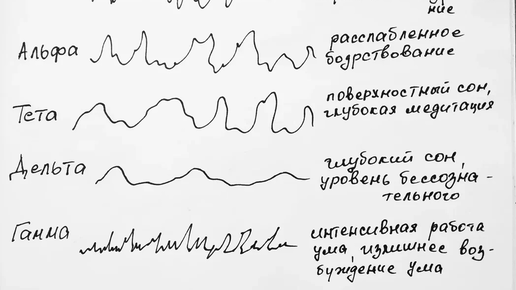 ние
Альфа
расслабленное
бодрствование
Тета
поверхностный сон,
глубокая медитация
Дельта
глубокий сон,
уровень бессозна-
тельного
Гамма
интенсивная работа
ума, излишнее воз-
буждение ума